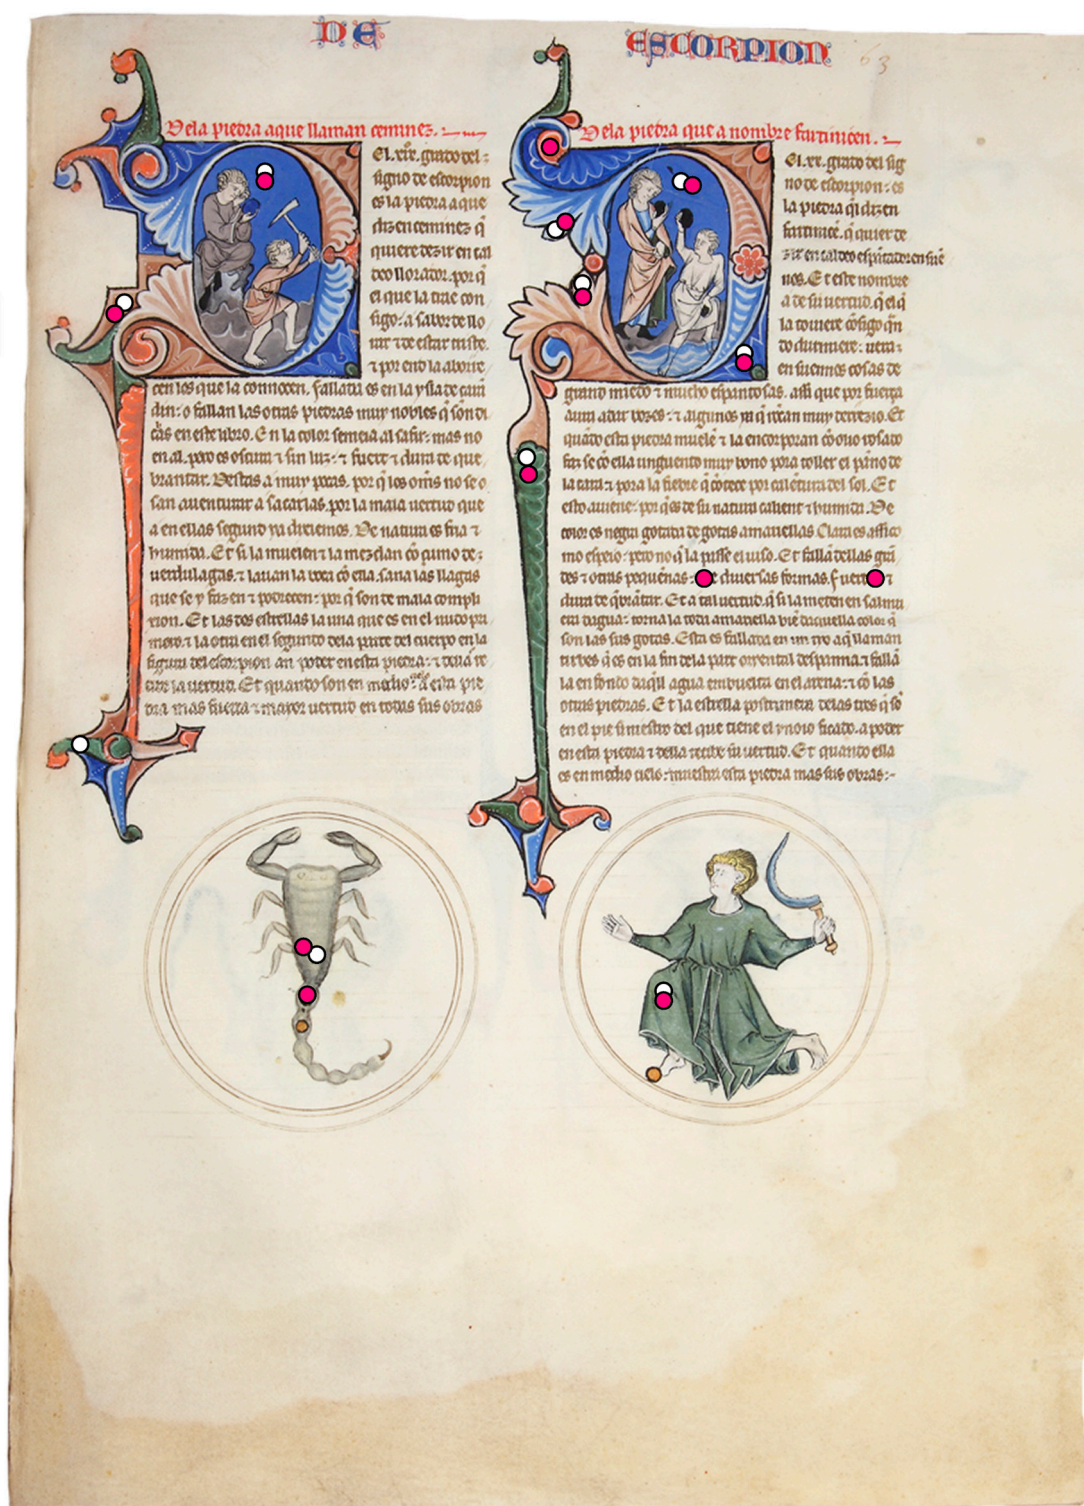 DE ESCORPION
63
Dela piedra aque llaman ceminez.
El .xix. grado del
signo de escorpion
es la piedra aque
dizen ceminez q̃
quiere dezir en cal
deo llorador. por q̃
el que la trae con
sigo: a sabor de llo
rar ⁊ de estar triste.
⁊ por end la aborre
cen los que la connocen. fallada es en la ysla de
din: o fallan las otras piedras muy nobles q̃ son di
chas en este libro. En la color semeia al safir: mas no
en al. pero es oscura ⁊ sin luz: ⁊ fuert ⁊ dura de que
brantar. Destas a muy pocas. por q̃ los oms̃ no se o
san auenturar a sacarlas. por la mala uertud que
a en ellas segund ya dixiemos. De natura es fria ⁊
humida. Et si la muelen ⁊ la mezclan cõ çumo de
uerdulagas. ⁊ lauan la boca cõ ella. sana las llagas
que se y fazen ⁊ podrecen: por q̃ son de mala compli
xion. Et las dos estrellas la una que es en el nudo pri
mero: ⁊ la otra en el segundo dela parte del cuerpo en la
figura del escorpion an poder en esta piedra: ⁊ della re
cibe la uertud. Et quando son en medio cielo a esta pie
dra mas fuerça ⁊ mayor uertud en todas sus obras
Dela piedra que a nombre fartinicen.
El .xx. grado del sig
no de escorpion: es
la piedra q̃ dizen
fartinicẽ. q̃ quier de
zir en caldeo espãtador en sue
nos. Et este nombre
a de su uertud. q̃ el q̃
la touiere cõsigo q̃n
do durmiere: uera
en suennos cosas de
grand miedo ⁊ mucho espantosas. assi que por fuerça
aura adar bozes: ⁊ algunos
quãdo esta piedra muelẽ ⁊ la encorporan cõ olio rosado
faz se cõ ella unguento muy bono pora toller el pãno de
la cara: ⁊ pora la fiebre q̃ cõtece por calẽtura del sol. Et
esto auiene: por q̃ es de su natura calient ⁊ humida. De
color es negra gotada de gotas amariellas. Clara es assi co
mo espeio: pero no q̃ la passe el uiso. Et fallã dellas grã
des ⁊ otras pequẽnas: diuersas formas. fuert ⁊
dura de q̃brãtar. Et a tal uertud. q̃ si la meten en salmu
era dagua: torna la toda amariella biẽ daquella color q̃
son las sus gotas. Esta es fallada en un rio aq̃ llaman
q̃ es en la fin dela part oriental despanna. ⁊ fallã
la en fondo daq̃ll agua embuelta en el arena: ⁊ cõ las
otras piedras. Et la estrella postrimera delas tres q̃ sõ
en el pie siniestro del que tiene el ynoio ficado. a poder
en esta piedra ⁊ della recibe su uertud. Et quando ella
es en medio cielo: muestra esta piedra mas sus obras:-